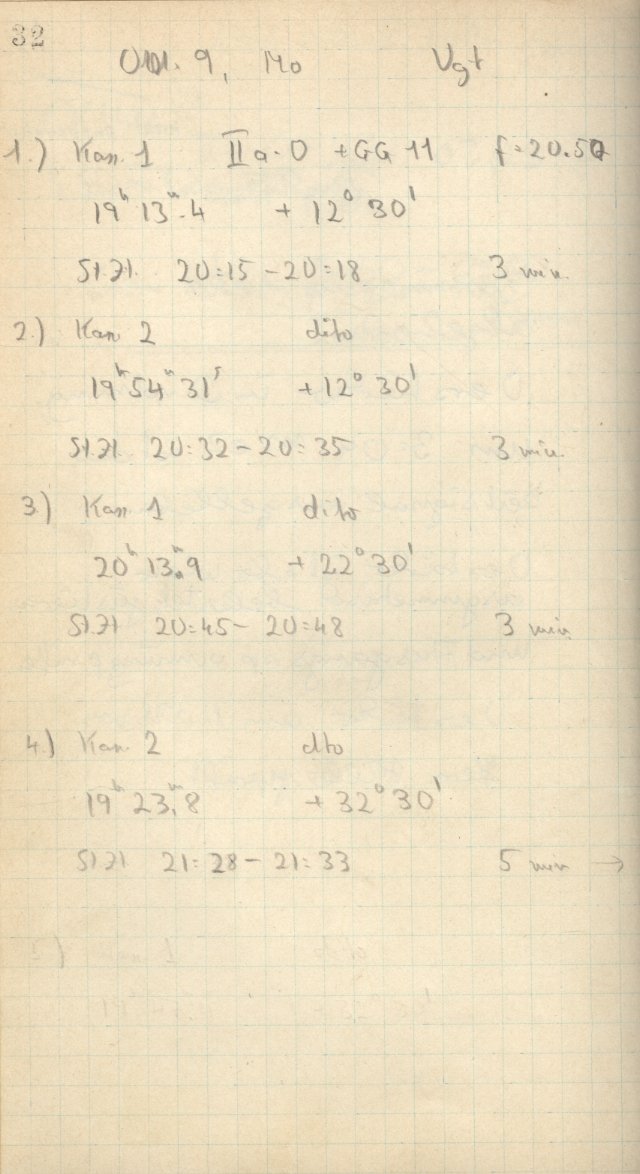 32
Okt. 9, Mo Vgt
1.) Kam. 1 IIa-O +GG 11 f=20.50
19ʰ 13ᵐ.4 + 12° 30'
St.Zt. 20:15 - 20:18 3 min.
2.) Kam 2 dito
19ʰ 54ᵐ 31ˢ + 12° 30'
St.Zt. 20:32 - 20:35 3 min.
3.) Kam 1 dito
20ʰ 13ᵐ.9 + 22° 30'
St.Zt 20:45 - 20:48 3 min.
4.) Kam. 2 dto
19ʰ 23ᵐ.8 + 32° 30'
St.Zt 21:28 - 21:33 5 min →